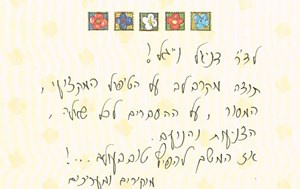 לד"ר דניאל ויגאל!
תודה מקרב לב על הטיפול המקצועי,
המסור, על ההסברים לכל שאלה,
הצניעות והנועם.
אז המשך להפיץ טוב בעולם...!
מוקירים ומעריכים